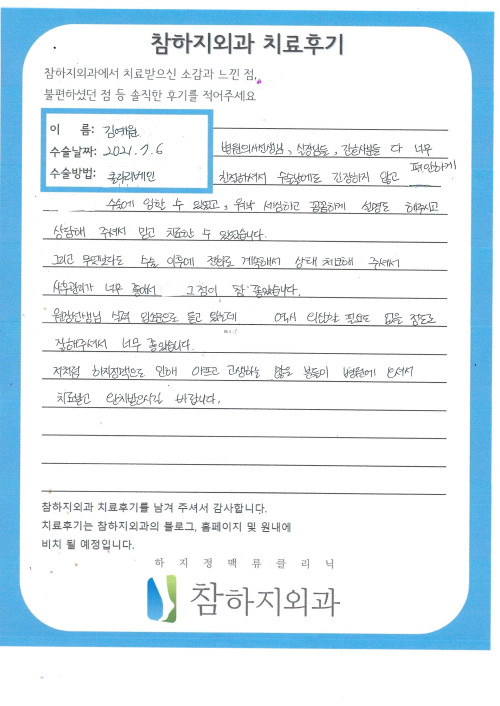 참하지외과 치료후기
참하지외과에서 치료받으신 소감과 느낀 점,
불편하셨던 점 등 솔직한 후기를 적어주세요
이 름: 김예원
수술날짜: 2021.7.6
수술방법: 클라리베인
병원의사선생님, 실장님들, 간호사분들 다 너무
친절하셔서 수술날에도 긴장하지 않고 편안하게
수술에 임할 수 있었고, 워낙 세심하고 꼼꼼하게 설명도 해주시고
상담해 주셔서 믿고 치료할 수 있었습니다.
그리고 무엇보다도 수술 이후에 전화로 계속해서 상태 체크해 주셔서
사후관리가 너무 좋아서 그점이 참 좋았습니다.
원장선생님 실력 입소문으로 듣고 왔는데 역시 의심할 필요도 없을 정도로
잘해주셔서 너무 좋았습니다.
저처럼 하지정맥으로 인해 아프고 고생하는 많은 분들이 병원에 오셔서
치료받고 완치받으시길 바랍니다.
참하지외과 치료후기를 남겨 주셔서 감사합니다.
치료후기는 참하지외과의 블로그, 홈페이지 및 원내에
비치 될 예정입니다.
하지정맥류클리닉
참하지외과